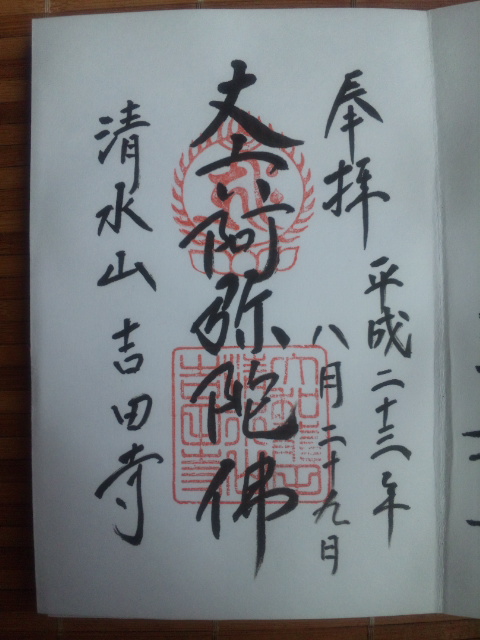 奉拝
平成二十三年
八月二十九日
丈六阿弥陀佛
清水山吉田寺